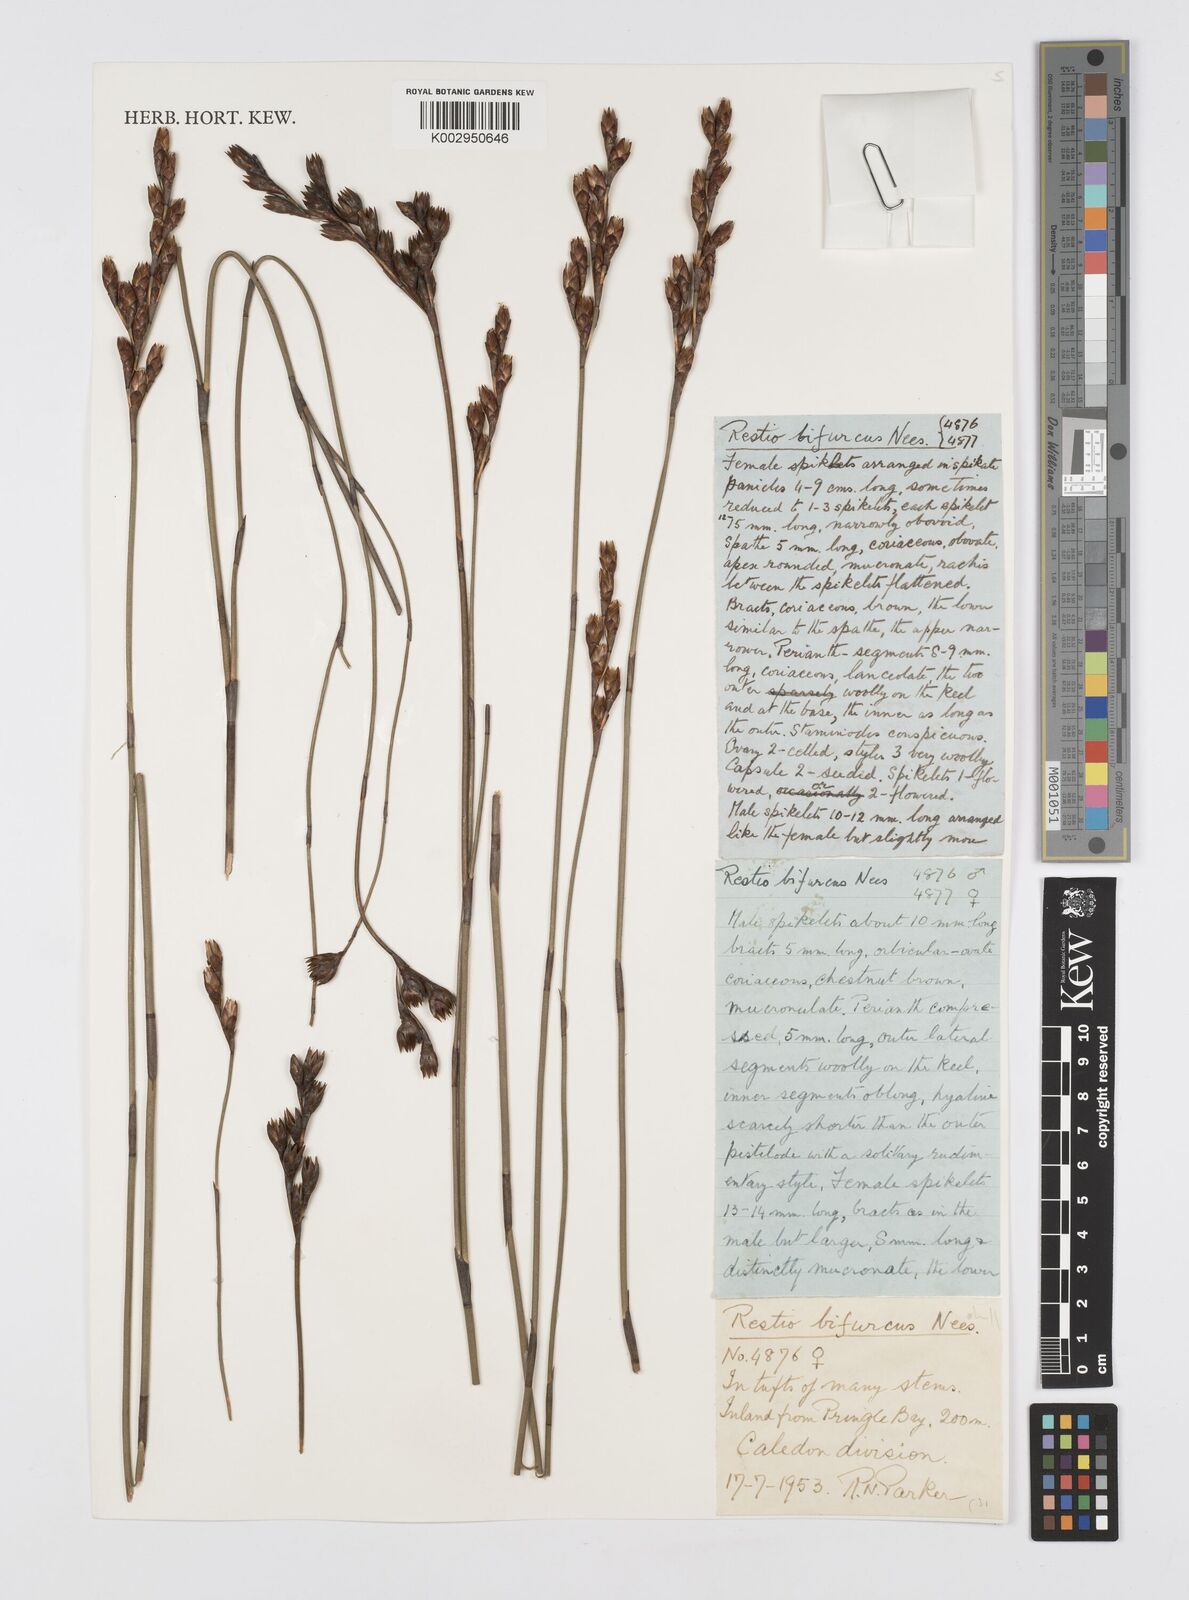 ROYAL BOTANIC GARDENS KEW
K002950646
HERB. HORT. KEW.
Restio bifurcus Nees. {4876
{4877
Female spikelets arranged in spikate
panicles 4-9 cms. long, sometimes
reduced to 1-3 spikelets, each spikelet
mm. long, narrowly obovoid.
Spathe 5 mm. long, coriaceous, obovate.
apex rounded, mucronate, rachis
between the spikelets flattened.
Bracts, coriaceous, brown, the lower
similar to the spathe, the upper nar-
rower. Perianth-segments 8-9 mm.
long, coriaceous, lanceolate, the two
outer sparsely woolly on the keel
and at the base, the inner as long as
the outer. Staminodes conspicuous.
Ovary 2-celled, styles 3 very woolly
Capsule 2-seeded. Spikelets 1-flo-
wered, occasionally or 2-flowered.
Male spikelets 10-12 mm. long arranged
like the female but slightly more
Restio bifurcus Nees 4876 ♂
4877 ♀
Male spikelets about 10 mm long
bracts 5 mm long, orbicular-ovate
coriaceous, chestnut brown,
mucronulate. Perianth compre-
ssed, 5 mm. long, outer lateral
segments woolly on the keel,
inner segments oblong, hyaline
scarcely shorter than the outer
pistilode with a solitary rudim-
entary style. Female spikelets
13-14 mm. long, bracts as in the
male but larger, 8 mm. long &
distinctly mucronate, the lower
Restio bifurcus Nees.
No. 4876 ♀
In tufts of many stems.
Inland from Pringle Bay. 200 m.
Caledon division.
17-7-1953. R.N. Parker
inches
centimeters
Don Williams
M001051
Royal Botanic Gardens
Kew
0 1 2 3 4 5 6 7 8 9 10
cm
copyright reserved